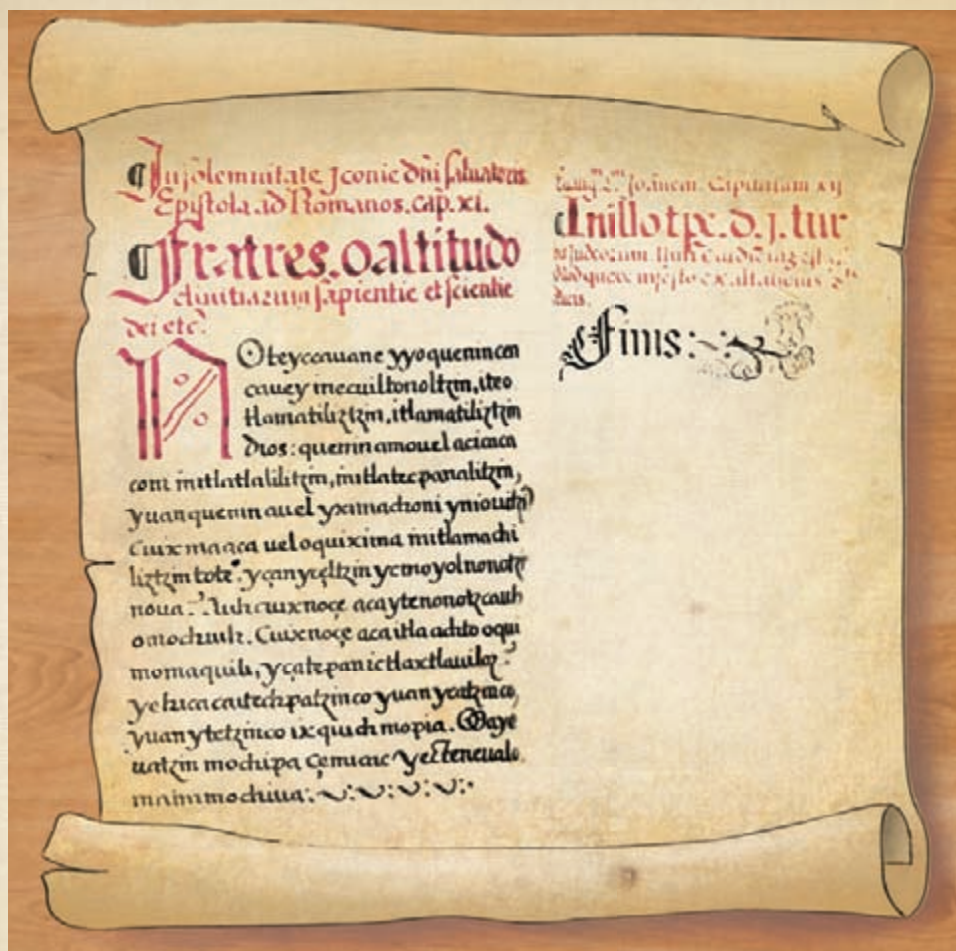 ¶ In solemnitate Jconie dni saluatoris
Epistola ad Romanos. cap. xi.
¶ Fratres. o altitudo
diuitiarum sapientie et scientie
dei etc.
N Oteyccauane yyoquenincen
cauey mecuiltonoltzin, iteo
tlamatiliztzin, itlamatiliztzin
Dios: quenin amouel aciaca
coni initlatlaliltzin, initlatecpanalitzin,
yuan quenin auel yximachoni yniouitzi
Cuix maaca uel oquixima initlamachi
liztzin toteº. yçanyçeltzin ycmoyolnonotz
noua.
omochiuh. Cuixnoçe aca itla achto oqui
momaquili, yçatepan ictlaxtlauiloz
yehica caitechpatzinco yuan ycatzinco,
yuan ytetzinco ixquich mopia. Maye
uatzin mochipa çemicac yecteneualo
mainmochiua:
Joannem. Capitulum xij
¶ In illo tpr. d. j. tur
Finis: